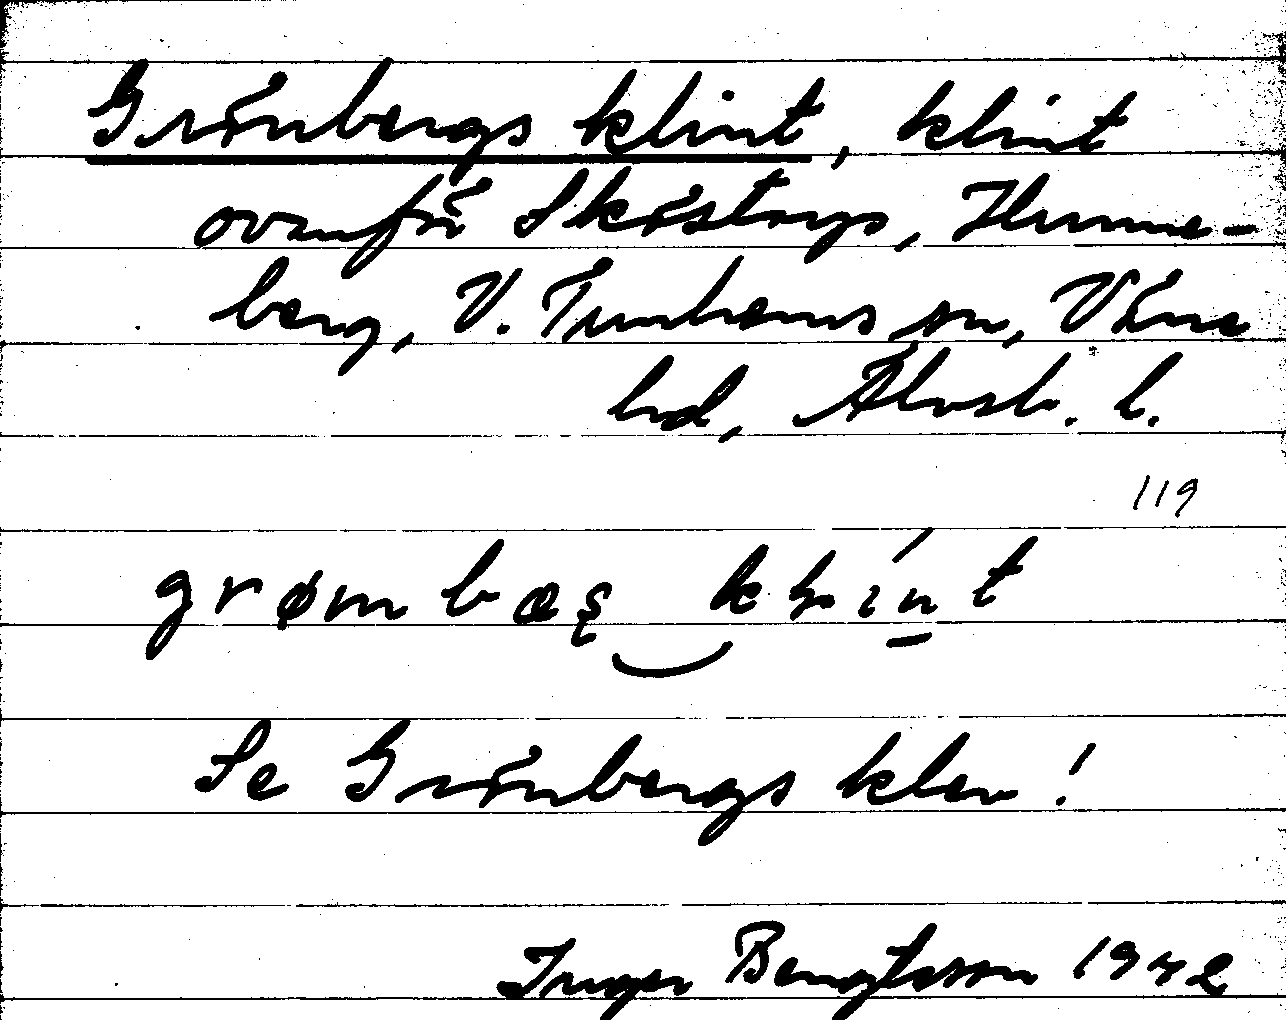 Grönbergs klint, klint
ovanför Sköstorp, Hunne-
berg, V. Tunhems sn, Väne
hd, Älvsb. l.
119
grømbæş klint
Se Grönbergs klev!
Inger Bengtsson 1942